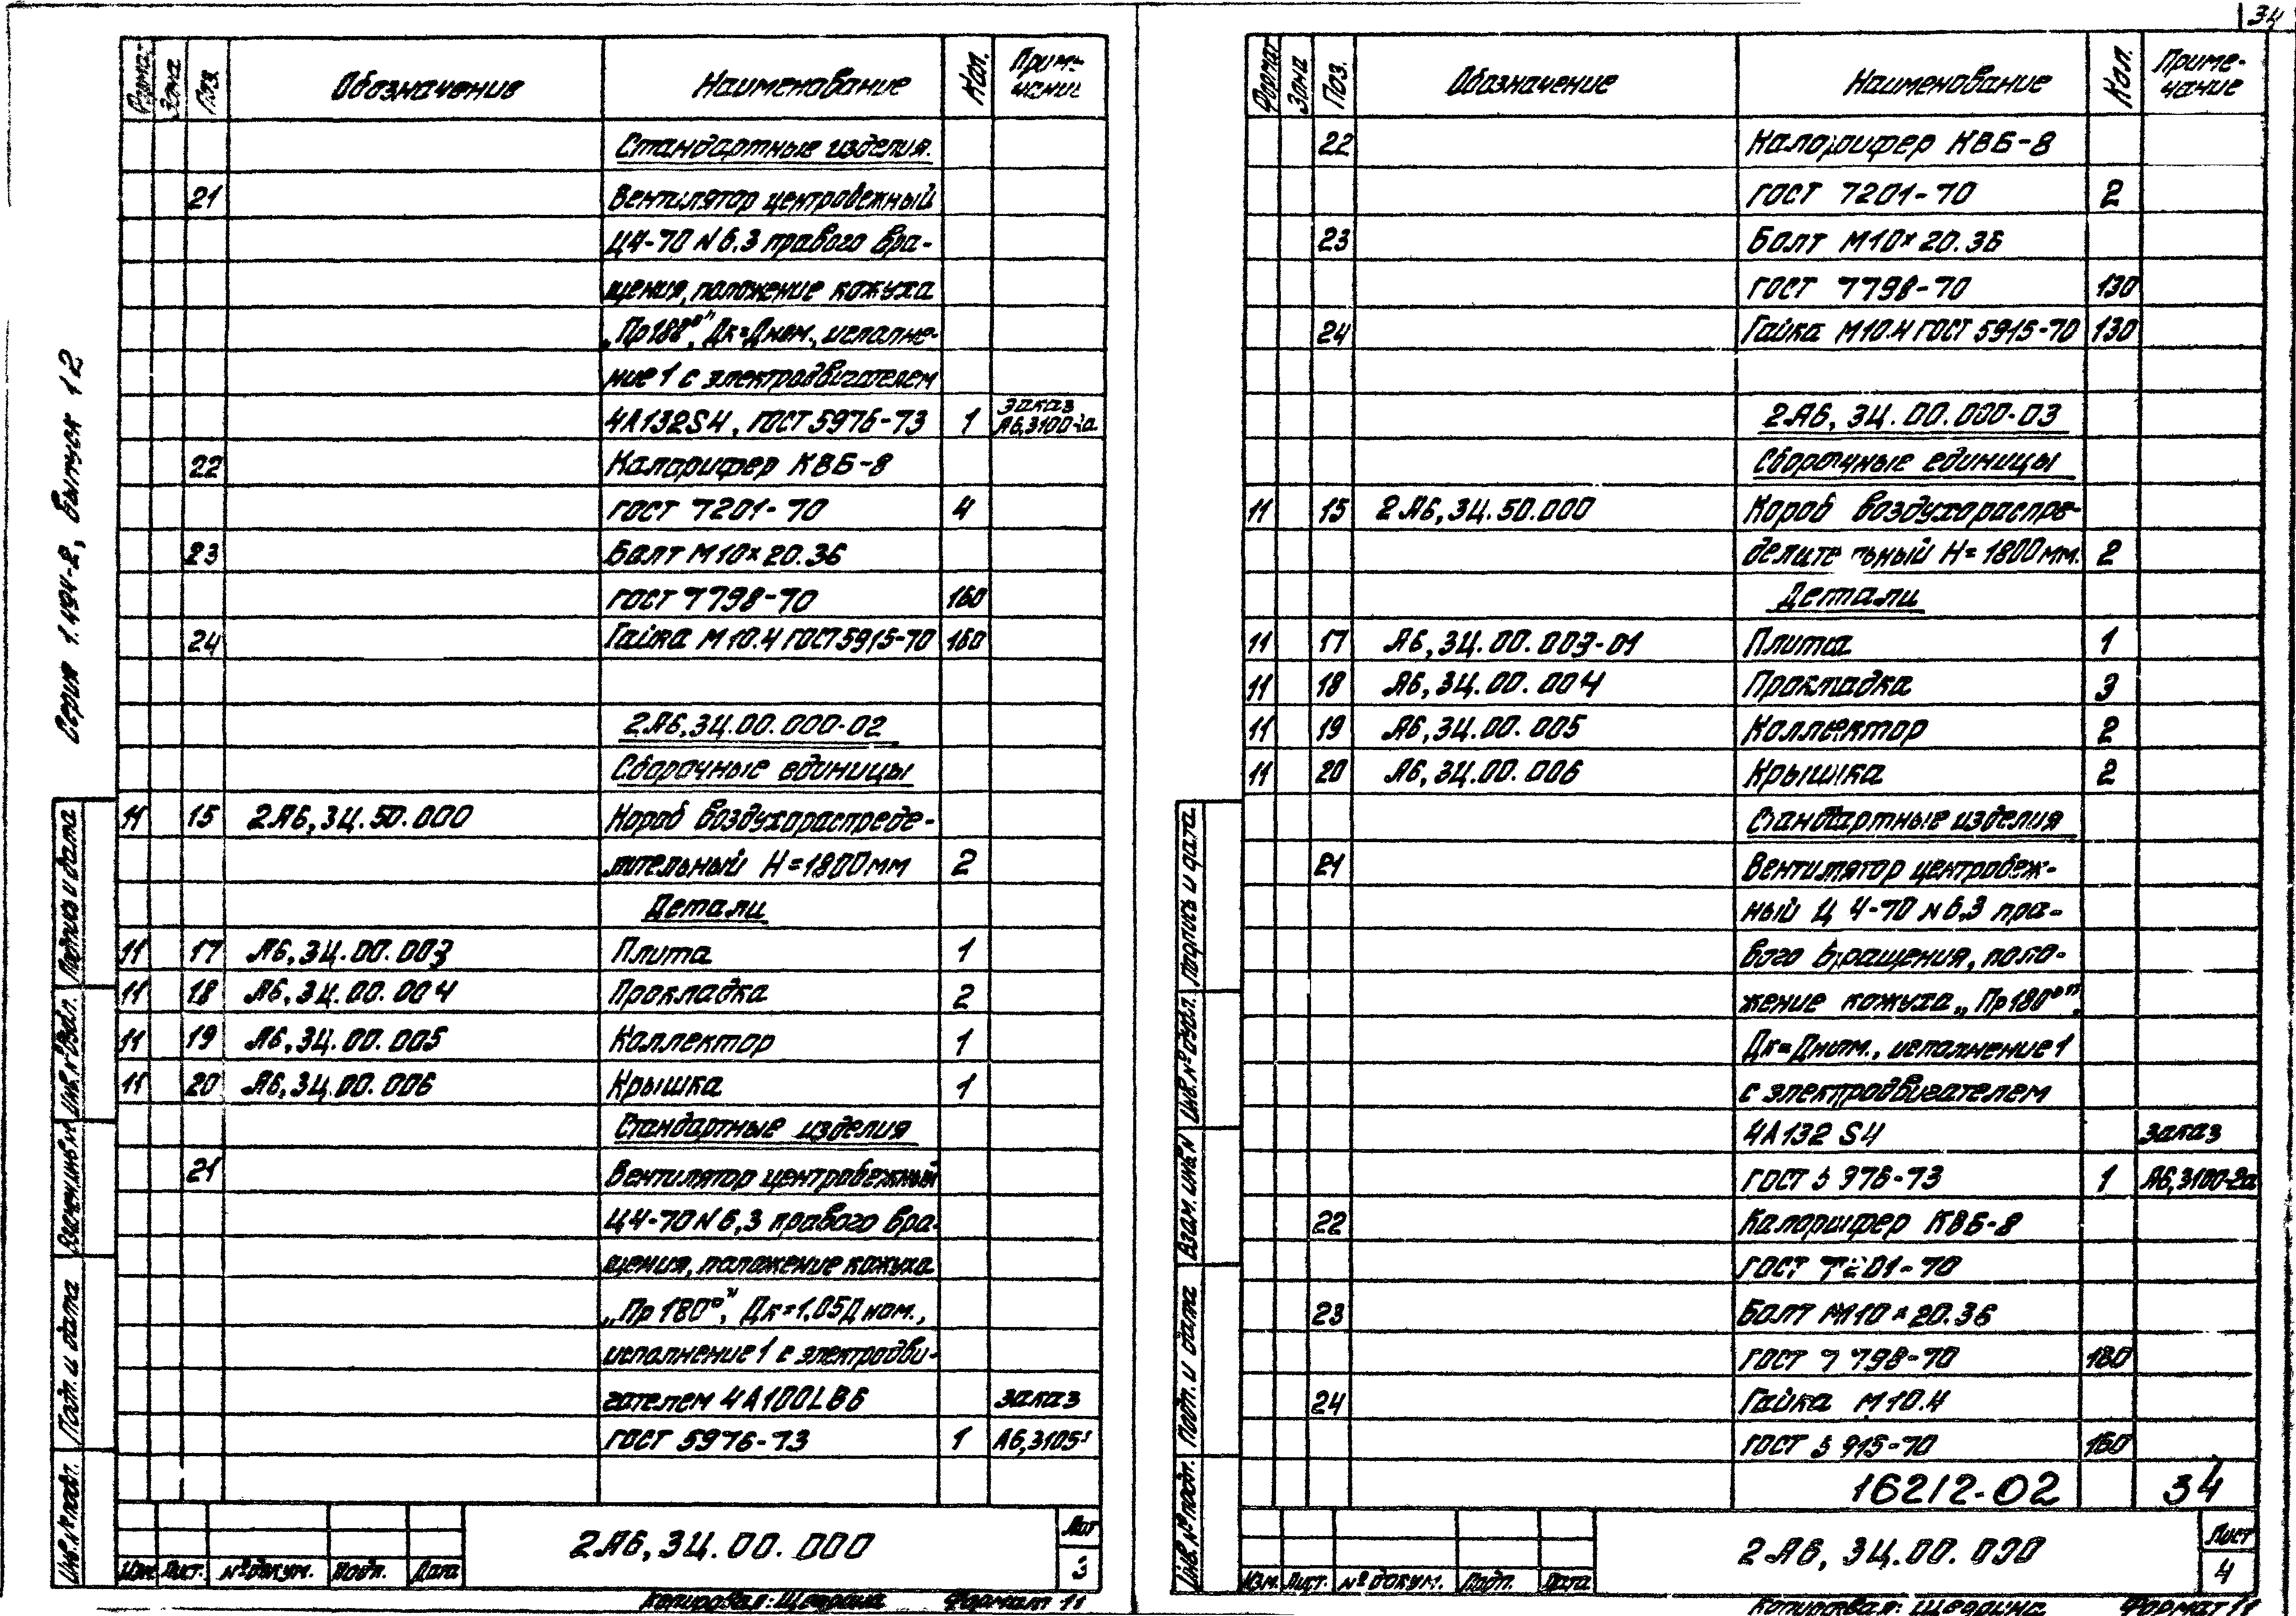 34
Серия 1.494-2, Выпуск 12
Зона Поз. Обозначение Наименование Кол. Приме-
чание
Стандартные изделия.
21 Вентилятор центробежный
Ц4-70 N6.3 правого вра-
щения, положение кожуха
„Пр180°", Дк=Дном., исполне-
ние 1 с электродвигателем
4А132S4, ГОСТ 5976-73 1 заказ А6,3100-2а
22 Калорифер КВБ-8
ГОСТ 7201-70 4
23 Болт М10×20.36
ГОСТ 7798-70 160
24 Гайка М10.4 ГОСТ 5915-70 160
2А6,3Ц.00.000-02
Сборочные единицы
11 15 2А6,3Ц.50.000 Короб воздухораспреде-
лительный Н=1800мм 2
Детали
11 17 А6,3Ц.00.003 Плита 1
11 18 А6,3Ц.00.004 Прокладка 2
11 19 А6,3Ц.00.005 Коллектор 1
11 20 А6,3Ц.00.006 Крышка 1
Стандартные изделия
21 Вентилятор центробежный
Ц4-70 N6,3 правого вра-
щения, положение кожуха
„Пр180°", Дк=1,05Дном.,
исполнение 1 с электродви-
гателем 4А100LB6 заказ
ГОСТ 5976-73 1 А6,3105
Подпись и дата
Инв.№дубл.
Взам.инв.№
Подп. и дата
Инв.№подл.
Изм. Лист. №докум. Подп. Дата
2А6,3Ц.00.000
Лист
3
Копировал: Щедрина Формат 11
Формат Зона Поз. Обозначение Наименование Кол. Приме-
чание
22 Калорифер КВБ-8
ГОСТ 7201-70 2
23 Болт М10×20.36
ГОСТ 7798-70 130
24 Гайка М10.4 ГОСТ 5915-70 130
2А6,3Ц.00.000-03
Сборочные единицы
11 15 2А6,3Ц.50.000 Короб воздухораспре-
делительный Н=1800мм. 2
Детали
11 17 А6,3Ц.00.003-01 Плита 1
11 18 А6,3Ц.00.004 Прокладка 3
11 19 А6,3Ц.00.005 Коллектор 2
11 20 А6,3Ц.00.006 Крышка 2
Стандартные изделия
21 Вентилятор центробеж-
ный Ц 4-70 N6,3 пра-
вого вращения, поло-
жение кожуха „Пр180°",
Дк=Дном., исполнение 1
с электродвигателем
4А132 S4 заказ
ГОСТ 5976-73 1 А6,3100-2а
22 Калорифер КВБ-8
ГОСТ 7201-70
23 Болт М10×20.36
ГОСТ 7798-70 160
24 Гайка М10.4
ГОСТ 5915-70 160
16212-02 34
Подпись и дата.
Инв.№дубл.
Взам.инв.N
Подп. и дата
Инв.№подл.
Изм. Лист. №докум. Подп. Дата
2А6,3Ц.00.000
Лист
4
Копировал: Щедрина Формат 11